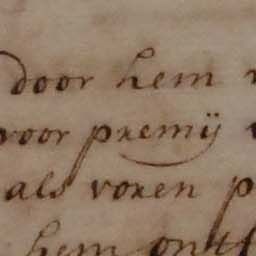 door hem
voor premij
als voren p
hem ontf